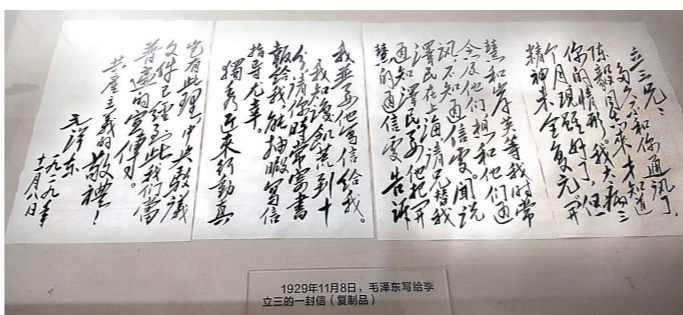 立三兄：
多久不和你通讯了，
陈毅同志来才知道
你的情形。我大病三
个月，现虽好了，但
精神未全复元。开
慧和岸英等我时常
念及他们，想和他们通
讯，不知通信处。闻说
泽民在上海，请兄替我
通知泽民，要他把开
慧的通信处告诉
我，並要他写信给我。
我知識飢荒到十
分，请你时常寄书
報给我，能抽暇写信
指导尤幸。
獨秀近来行動真
豈有此理，中央驳議
文件已經到此，我们當
普遍的宣傳。
共產主義的敬禮！
毛泽东
一九二九年
十一月八日
1929年11月8日，毛泽东写给李
立三的一封信（复制品）